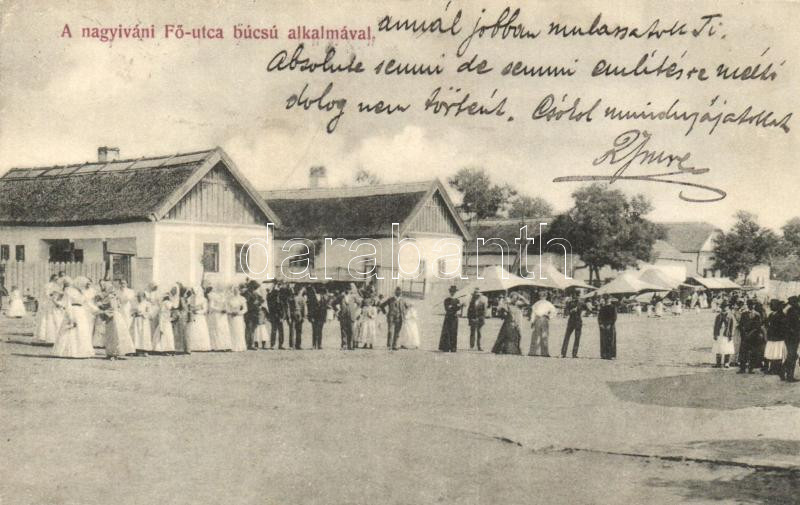 A nagyiváni Fő-utca búcsú alkalmával.
annál jobban mulassatok Ti.
Absolute semmi de semmi említésre méltó
dolog nem történt. Csókol mindnyájatokat
Imre
darabanth